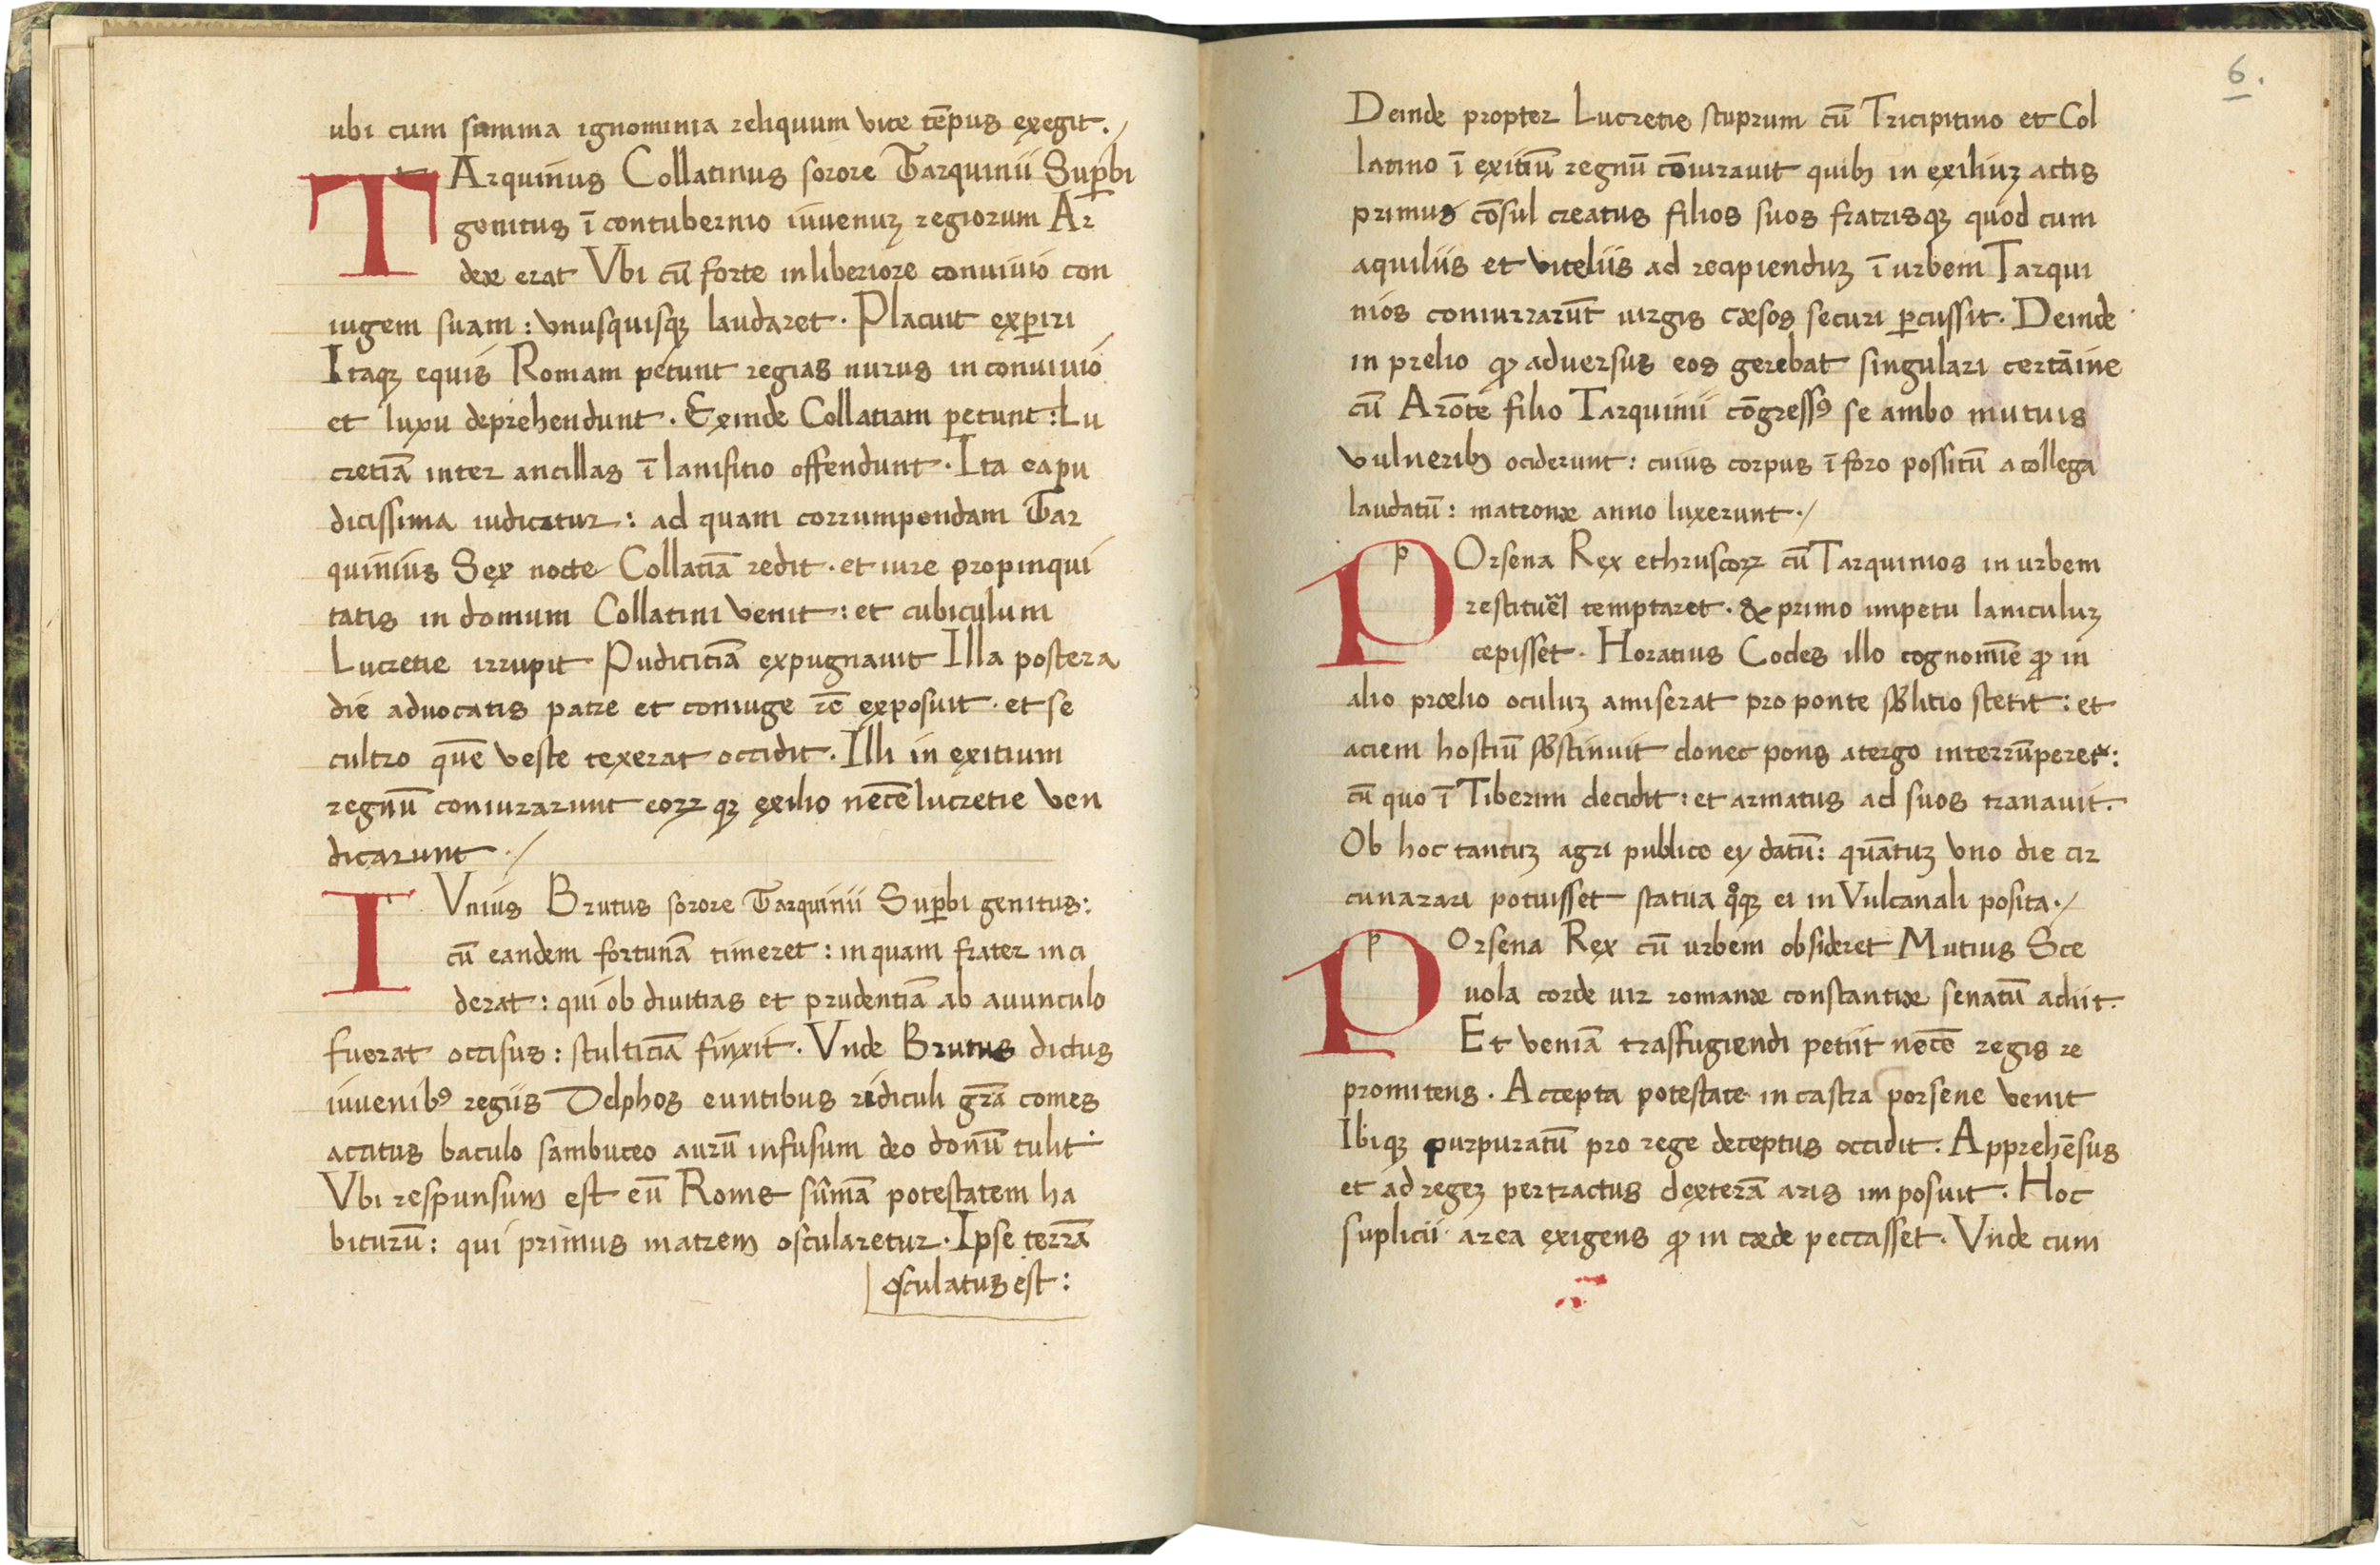 ubi cum summa ignominia reliquum vite tēpus exegit./
TArquinius Collatinus sorore Tarquinii Suꝑbi
genitus ī contubernio iuvenuꝫ regiorum Ar
deæ erat Vbi cū forte in liberiore convivio con
iugem suam : vnusquisqꝫ laudaret · Placuit exꝑiri
Itaqꝫ equis Romam petunt regias nurus in convivio
et luxu deprehendunt · Exinde Collatiam petunt : Lu
cretiā inter ancillas ī lanifitio offendunt · Ita ea pu
dicissima iudicatur : ad quam corrumpendam Tar
quinius Sex nocte Collatiā redit · et iure propinqui
tatis in domum Collatini venit : et cubiculum
Lucretie irrupit Pudicitiā expugnavit Illa postera
die advocatis patre et coniuge rē exposuit · et se
cultro quē veste texerat occidit · Illi in exitium
regnū coniurarunt eoꝝ qꝫ exilio necē lucretie ven
dicarunt ·/
IVnius Brutus sorore Tarquinii Suꝑbi genitus :
cū eandem fortunā timeret : in quam frater inci
derat : qui ob divitias et prudentiā ab avunculo
fuerat occisus : stulticiā finxit · Vnde Brutus dictus
iuvenibꝰ regiis Delphos euntibus ridiculi grā comes
accitus baculo sambuceo aurū infusum deo donū tulit ·
Vbi respunsum est eū Rome sūmā potestatem ha
biturū : qui primus matrem oscularetur · Ipse terrā
osculatus est :
6.
Deinde propter Lucretie stuprum cū Tricipitino et Col
latino ī exitiū regnū cōiuravit quibꝫ in exiliuꝫ actis
primus cōsul creatus filios suos fratrisqꝫ quod cum
aquiliis et viteliis ad recipienduꝫ ī urbem Tarqui
nios coniurrarūt virgis cæsos securi ꝑcussit · Deinde
in prelio ꝙ adversus eos gerebat singulari certāine
cū Arōte filio Tarquinii cōgressꝰ se ambo mutuis
vulneribꝫ ociderunt : cuius corpus ī foro possitū a collega
laudatū : matronæ anno luxerunt ·/
p
POrsena Rex ethruscoꝝ cū Tarquinios in urbem
restituē temptaret · & primo impetu Ianiculuꝫ
cepisset · Horatius Cocles illo cognomīe ꝙ in
alio prælio oculuꝫ amiserat pro ponte sb̄licio stetit : et
aciem hostiū sb̄stinuit donec pons atergo interrūperet :
cū quo ī Tiberim decidit : et armatus ad suos tranavit ·
Ob hoc tantuꝫ agri publico ey datū : quātuꝫ vno die cir
cunarari potuisset statua qͦqꝫ ei in Vulcanali posita ·/
p
POrsena Rex cū urbem obsideret Mutius Sce
vola corde vir romanæ constantiæ senatū adiit ·
Et veniā trasfugiendi petiit necē regis re
promitens · Accepta potestate in castra porsene venit
Ibiqꝫ purpuratū pro rege deceptus occidit · Apprehēsus
et ad regeꝫ pertractus dexterā aris imposuit · Hoc
suplicii area exigens ꝙ in cæde peccasset · Vnde cum